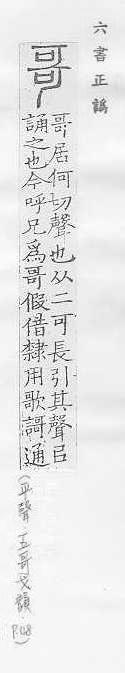 六書正譌
哥
哥居何切聲也从二可長引其聲㠯
誦之也今呼兄爲哥假借隸用歌謌通
(平聲·五哥戈韻 P.48)